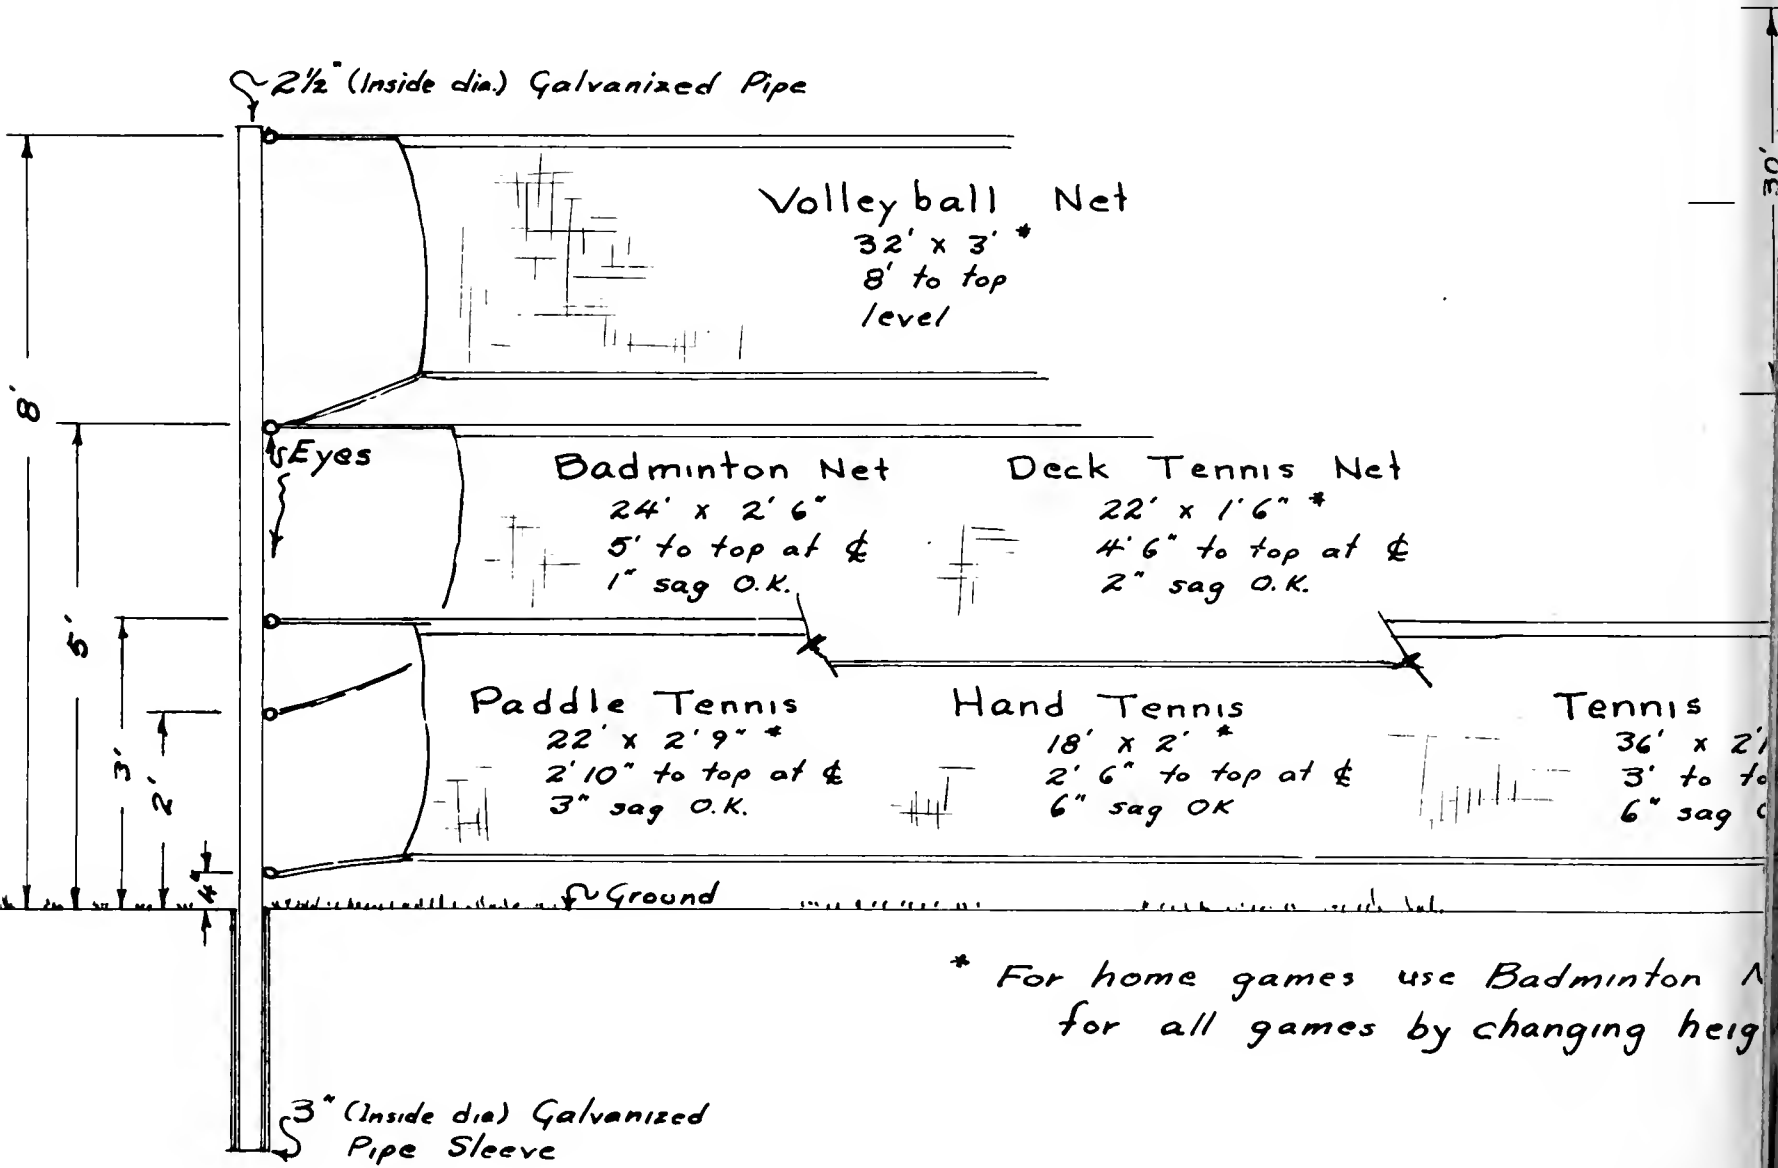 2½" (Inside dia.) Galvanized Pipe
30'
Volley ball Net
32' x 3' *
8' to top
level
8'
Eyes
Badminton Net
24' x 2' 6"
5' to top at ℄
1" sag O.K.
Deck Tennis Net
22' x 1' 6" *
4' 6" to top at ℄
2" sag O.K.
5'
Paddle Tennis
22' x 2' 9" *
2' 10" to top at ℄
3" sag O.K.
Hand Tennis
18' x 2' *
2' 6" to top at ℄
6" sag OK
Tennis
36' x 2'
3' to
6" sag
3'
2'
4"
Ground
* For home games use Badminton
for all games by changing
3" (Inside dia) Galvanized
Pipe Sleeve